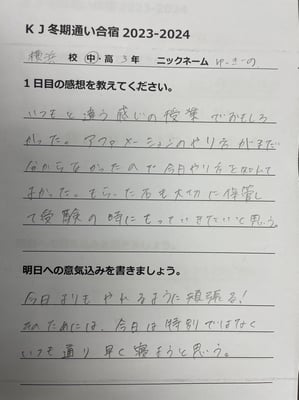 KJ冬期通い合宿 2023-2024
横浜 校 中・高 3 年 ニックネーム ゆーきの
1日目の感想を教えてください。
いつもと違う感じの授業でおもしろ
かった。アファメーションのやり方がまだ
分からなかったので今日やり方を知れて
よかった。もらった石も大切に保管し
て受験の時にもっていきたいと思う。
明日への意気込みを書きましょう。
今日よりもやれるように頑張る!
そのためには、今日は特別ではなく
いつも通り早く寝ようと思う。